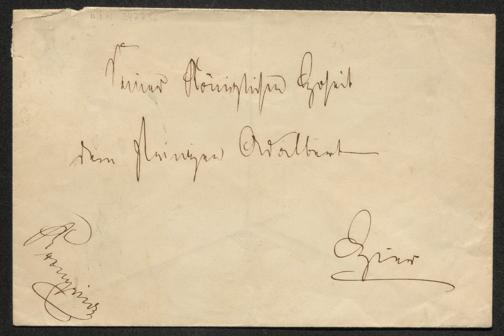 Seiner Königlichen Hoheit
dem Prinzen Adalbert
Hier
Kronprinz